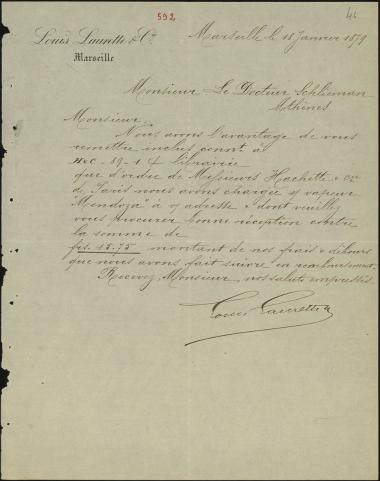 592
46
Louis Laurette & Cie
Marseille
Marseille le 18 Janvier 1879
Monsieur Le Docteur Schlieman
Athènes
Monsieur
Nous avons l'avantage de vous
remettre inclus connt. à
H&C - 89 - 1 C/ Librairie
que d'ordre de Messieurs Hachette & Cie
de Paris nous avons chargée p vapeur
"Mendoza" à v/ adresse & dont veuillez
vous procurer bonne réception contre
la somme de
frs 15.75 montant de nos frais & débours
que nous avons fait suivre en remboursement.
Recevez, Monsieur nos saluts empressés
Louis Laurette &